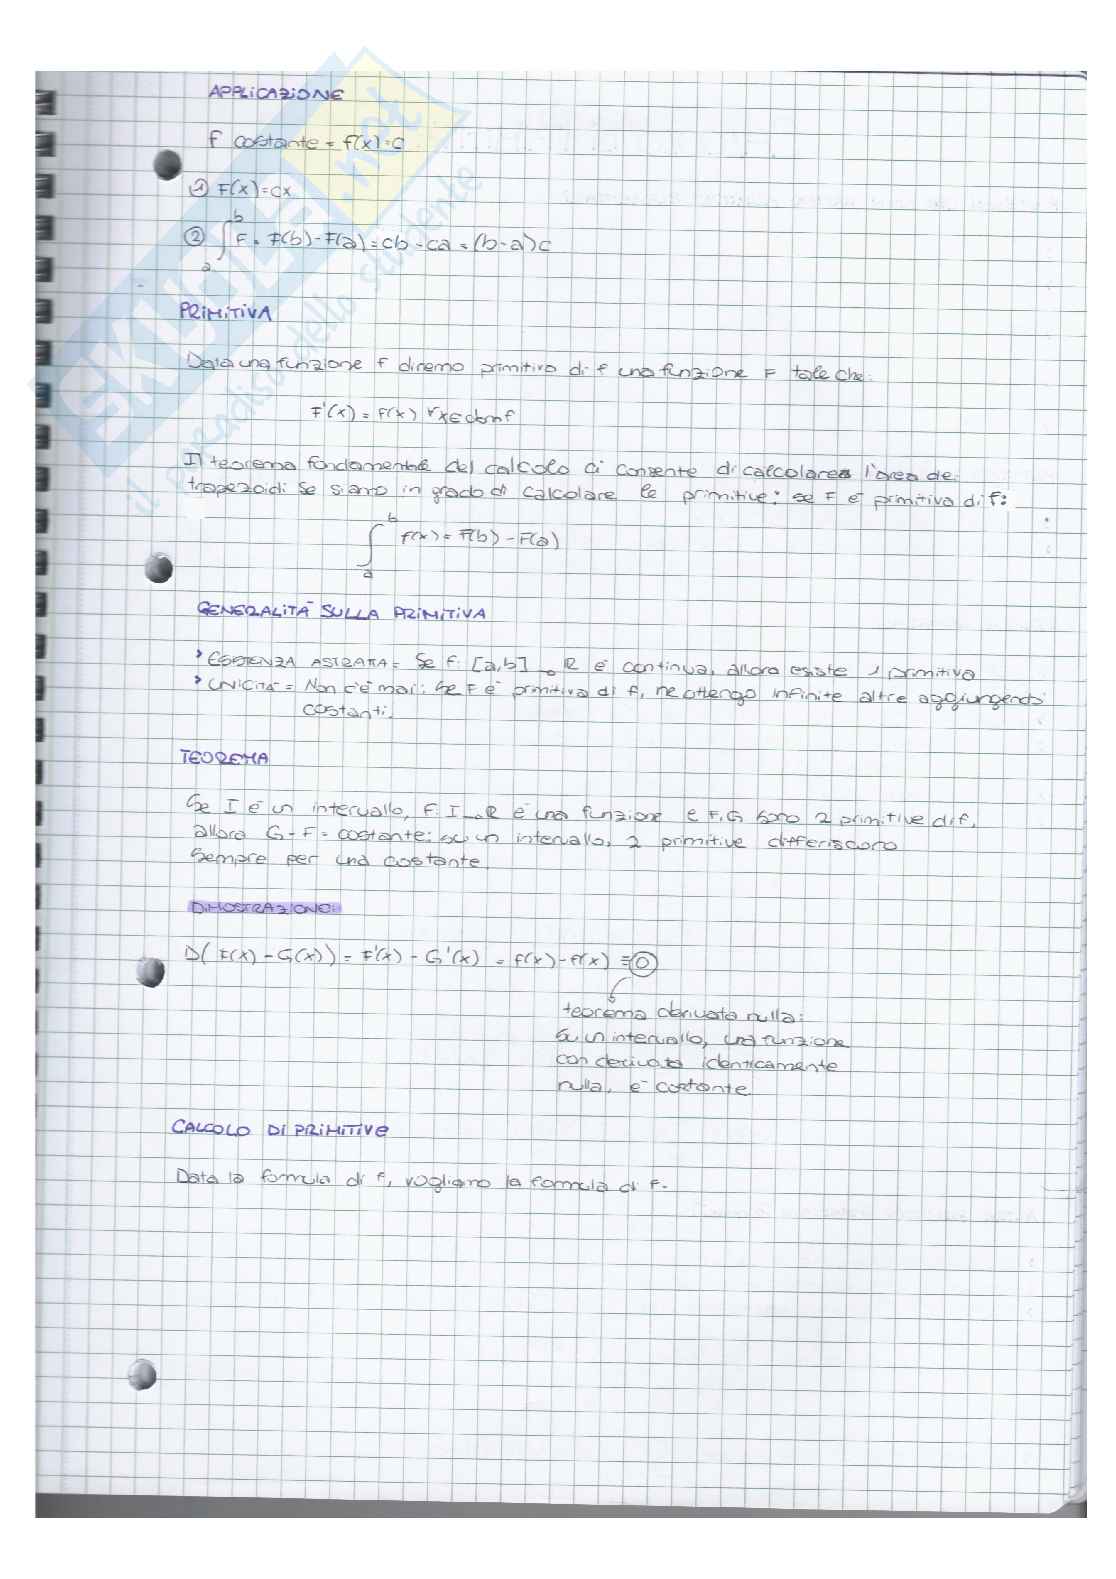 APPLICAZIONE
f costante = f(x)=c
① F(x)=cx
② ∫ₐᵇ F = F(b)-F(a)=cb-ca=(b-a)c
PRIMITIVA
Data una funzione f diremo primitiva di f una funzione F tale che:
F'(x) = f(x) ∀x∈domf
Il teorema fondamentale del calcolo ci consente di calcolare l'area de:
trapezoidi se siamo in grado di calcolare le primitive: se F è primitiva di f:
∫ₐᵇ f(x) = F(b) - F(a)
GENERALITÀ SULLA PRIMITIVA
> ESISTENZA ASTRATTA = Se f: [a,b] → R è continua, allora esiste 1 primitiva
> UNICITÀ = Non c'è mai: Se F è primitiva di f, ne ottengo infinite altre aggiungendo
costanti.
TEOREMA
Se I è un intervallo, f: I → R è una funzione e F,G sono 2 primitive di f,
allora G-F = costante: su un intervallo, 2 primitive differiscono
sempre per una costante.
DIMOSTRAZIONE:
D( F(x) - G(x)) = F'(x) - G'(x) = f(x) - f(x) ≡ 0
teorema derivata nulla:
su un intervallo, una funzione
con derivata identicamente
nulla, è costante
CALCOLO DI PRIMITIVE
Data la formula di f, vogliamo la formula di F.
SKUOLA.net
il paradiso dello studente